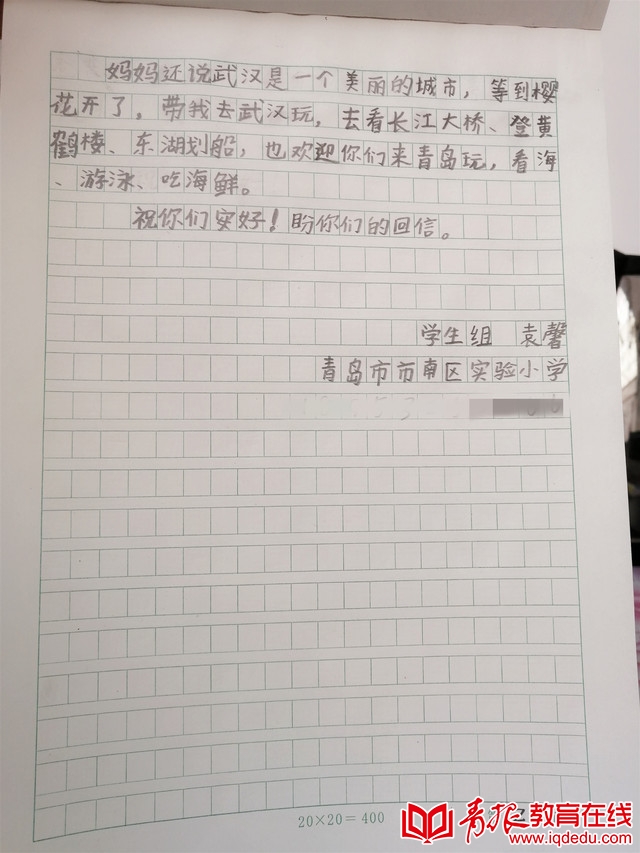 妈妈还说武汉是一个美丽的城市，等到樱
花开了，带我去武汉玩，去看长江大桥、登黄
鹤楼、东湖划船，也欢迎你们来青岛玩，看海
、游泳、吃海鲜。
祝你们安好！盼你们的回信。
学生组 袁馨
青岛市市南区实验小学
20×20=400
青报教育在线
www.iqdedu.com